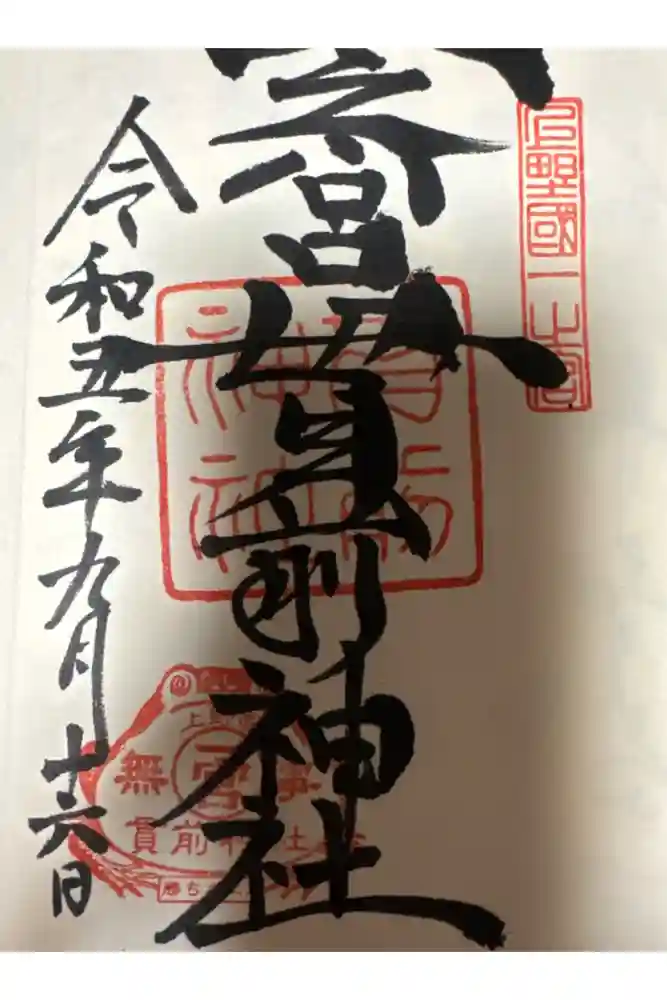 上野國一之宮
一之宮貫前神社
令和五年九月十六日
無事
貫前神社